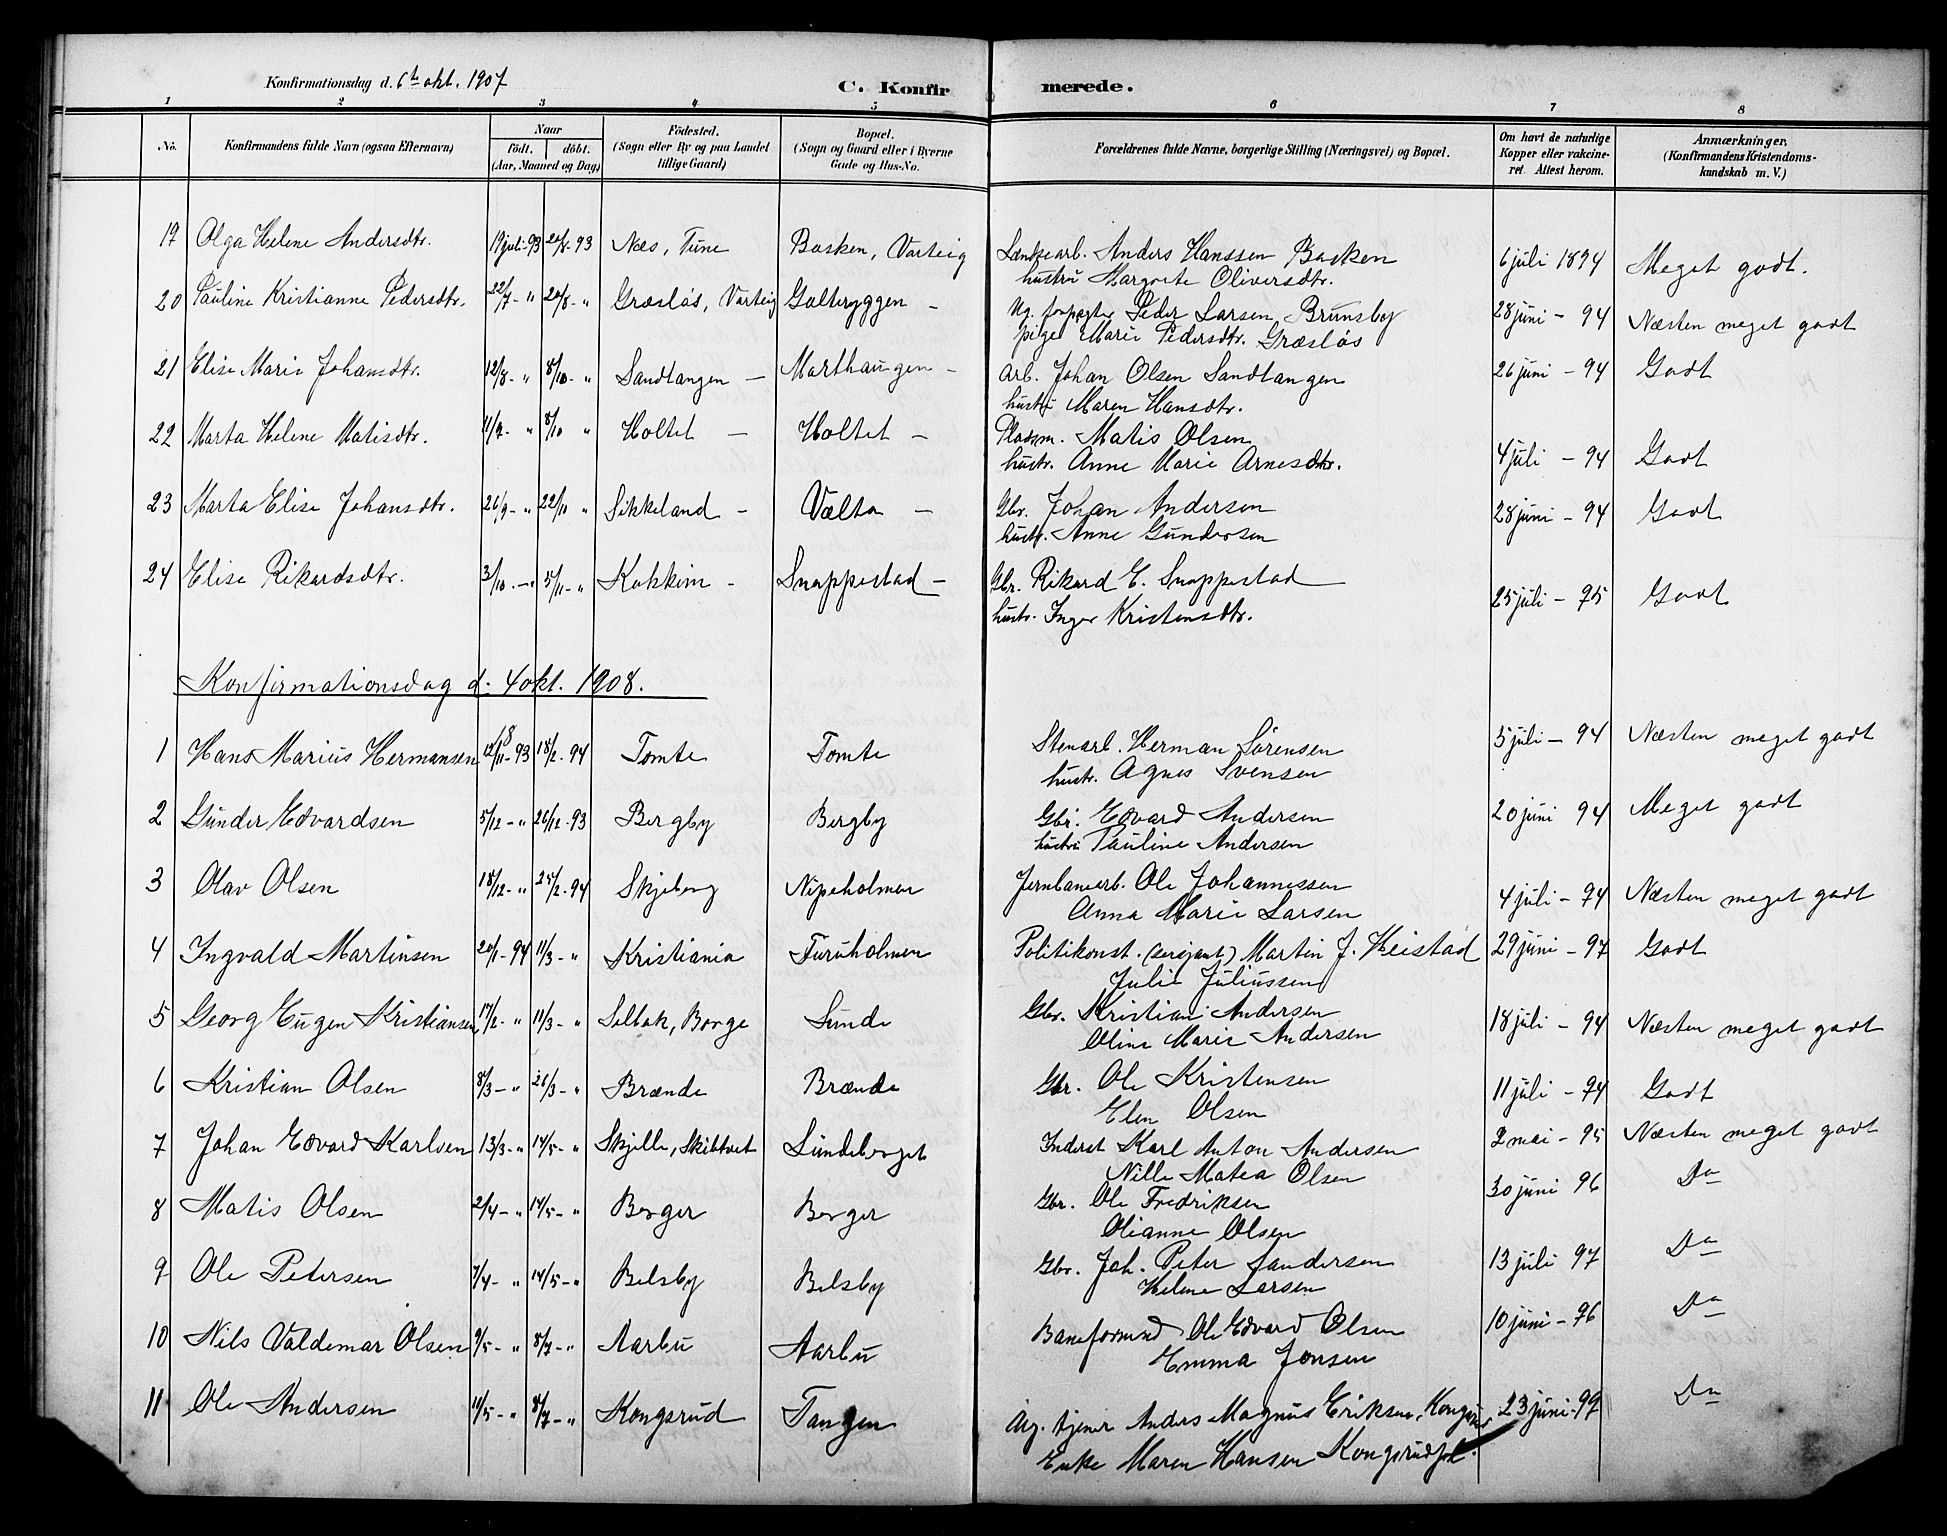 Konfirmationsdag d. 6te okt. 1907
C. Konfirmerede.
1 2 3 4 5 6 7 8
No. Konfirmandens fulde Navn (ogsaa Efternavn) Naar födt. döbt. (Aar, Maaned og Dag) Födested. (Sogn eller By og paa Landet tillige Gaard) Bopæl. (Sogn og Gaard eller i Byerne Gade og Hus-No. Forældrenes fulde Navne, borgerlige Stilling (Næringsvei) og Bopæl. Om havt de naturlige Kopper eller vakcineret Attest herom. Anmærkninger. (Konfirmandens Kristendomskundskab m. V.)
19 Olga Helene Andersdtr. 19 juli-93 20/8-93 Næs, Tune Bakken, Varteig Landsearb. Anders Hanssen Bakken 6 juli 1894 Meget godt.
hustru Margrete Oliversdtr.
20 Pauline Kristianne Pedersdtr. 22/7-" 20/8-" Græslös, Varteig Galteryggen - Ug. forpagter Peder Larsen Brunsby 28 juni - 94 Næsten meget godt
pige Marie Pedersdtr. Græslös
21 Elise Marie Johansdtr. 12/8-" 8/10-" Sandtangen - Marthaugen - Arb. Johan Olsen Sandtangen 26 juni - 94 Godt
hustru Maren Hansdtr.
22 Marta Helene Matisdtr. 11/9-" 8/10 " Holtet - Holtet - Pladsm. Matis Olsen 4 juli - 94 Godt
hustr. Anne Marie Arnesdtr.
23 Marta Elise Johansdtr. 26/9-" 22/10 " Sikkeland - Vælta - Gbr. Johan Andersen 28 juni - 94 Godt
hustr. Anne Gundersen
24 Elise Rikardsdtr. 3/10.-" 5/11-" Kokkim - Snappestad - Gbr. Rikard E. Snappestad 25 juli - 95 Godt
hustr. Inger Kristensdtr.
Konfirmationsdag d. 4 okt. 1908.
1 Hans Marius Hermansen 12/11-93 18/2-94 Tomte Tomte Stenarb. Herman Sörensen 5 juli - 94 Næsten meget godt
hustr. Agnes Svensen
2 Gunder Edvardsen 5/12-" 26/12-93 Bergby Bergby Gbr. Edvard Andersen 20 juni 94 Meget godt
hustru Pauline Andersen
3 Olav Olsen 18/12-" 25/2-94 Skjeberg Nipeholmen Jernbanearb. Ole Johannessen 4 juli - 94 Næsten meget godt
Anna Marie Larsen
4 Ingvald Martinsen 20/1-94 11/3-" Kristiania Furuholmen Politikonst. (sersjant) Martin J. Heistad 29 juni - 97 Godt
Julie Juliussen
5 Georg Eugen Kristiansen 17/2-" 11/3-" Selbak, Borge Sunde Gbr. Kristian Andersen 18 juli - 94 Næsten meget godt
Oline Marie Andersen
6 Kristian Olsen 8/3-" 26/3-" Brænde Brænde Gbr. Ole Kristensen 11 juli - 94 Godt
Elen Olsen
7 Johan Edvard Karlsen 13/3-" 14/5-" Skjelle, Skibtvet Lundeberget Inderst Karl Anton Andersen 2 mai - 95 Næsten meget godt
Nille Matea Olsen
8 Matis Olsen 2/4-" 14/5-" Berger Berger Gbr. Ole Fredriksen 30 juni 96 Do
Olianne Olsen
9 Ole Petersen 7/4-" 14/5-" Belsby Belsby Gbr. Joh. Peter Sandersen 13 juli 97 Do
Helene Larsen
10 Nils Valdemar Olsen 9/5-" 8/7-" Aarbu Aarbu Baneformnd Ole Edvard Olsen 10 juni - 96 Do
Emma Jonsen
11 Ole Andersen 11/5-" 8/7-" Kongsrud Tangen tjener Anders Magnus Eriksen, Kongsrud 23 juni-99 Do
Enke Maren Hansen